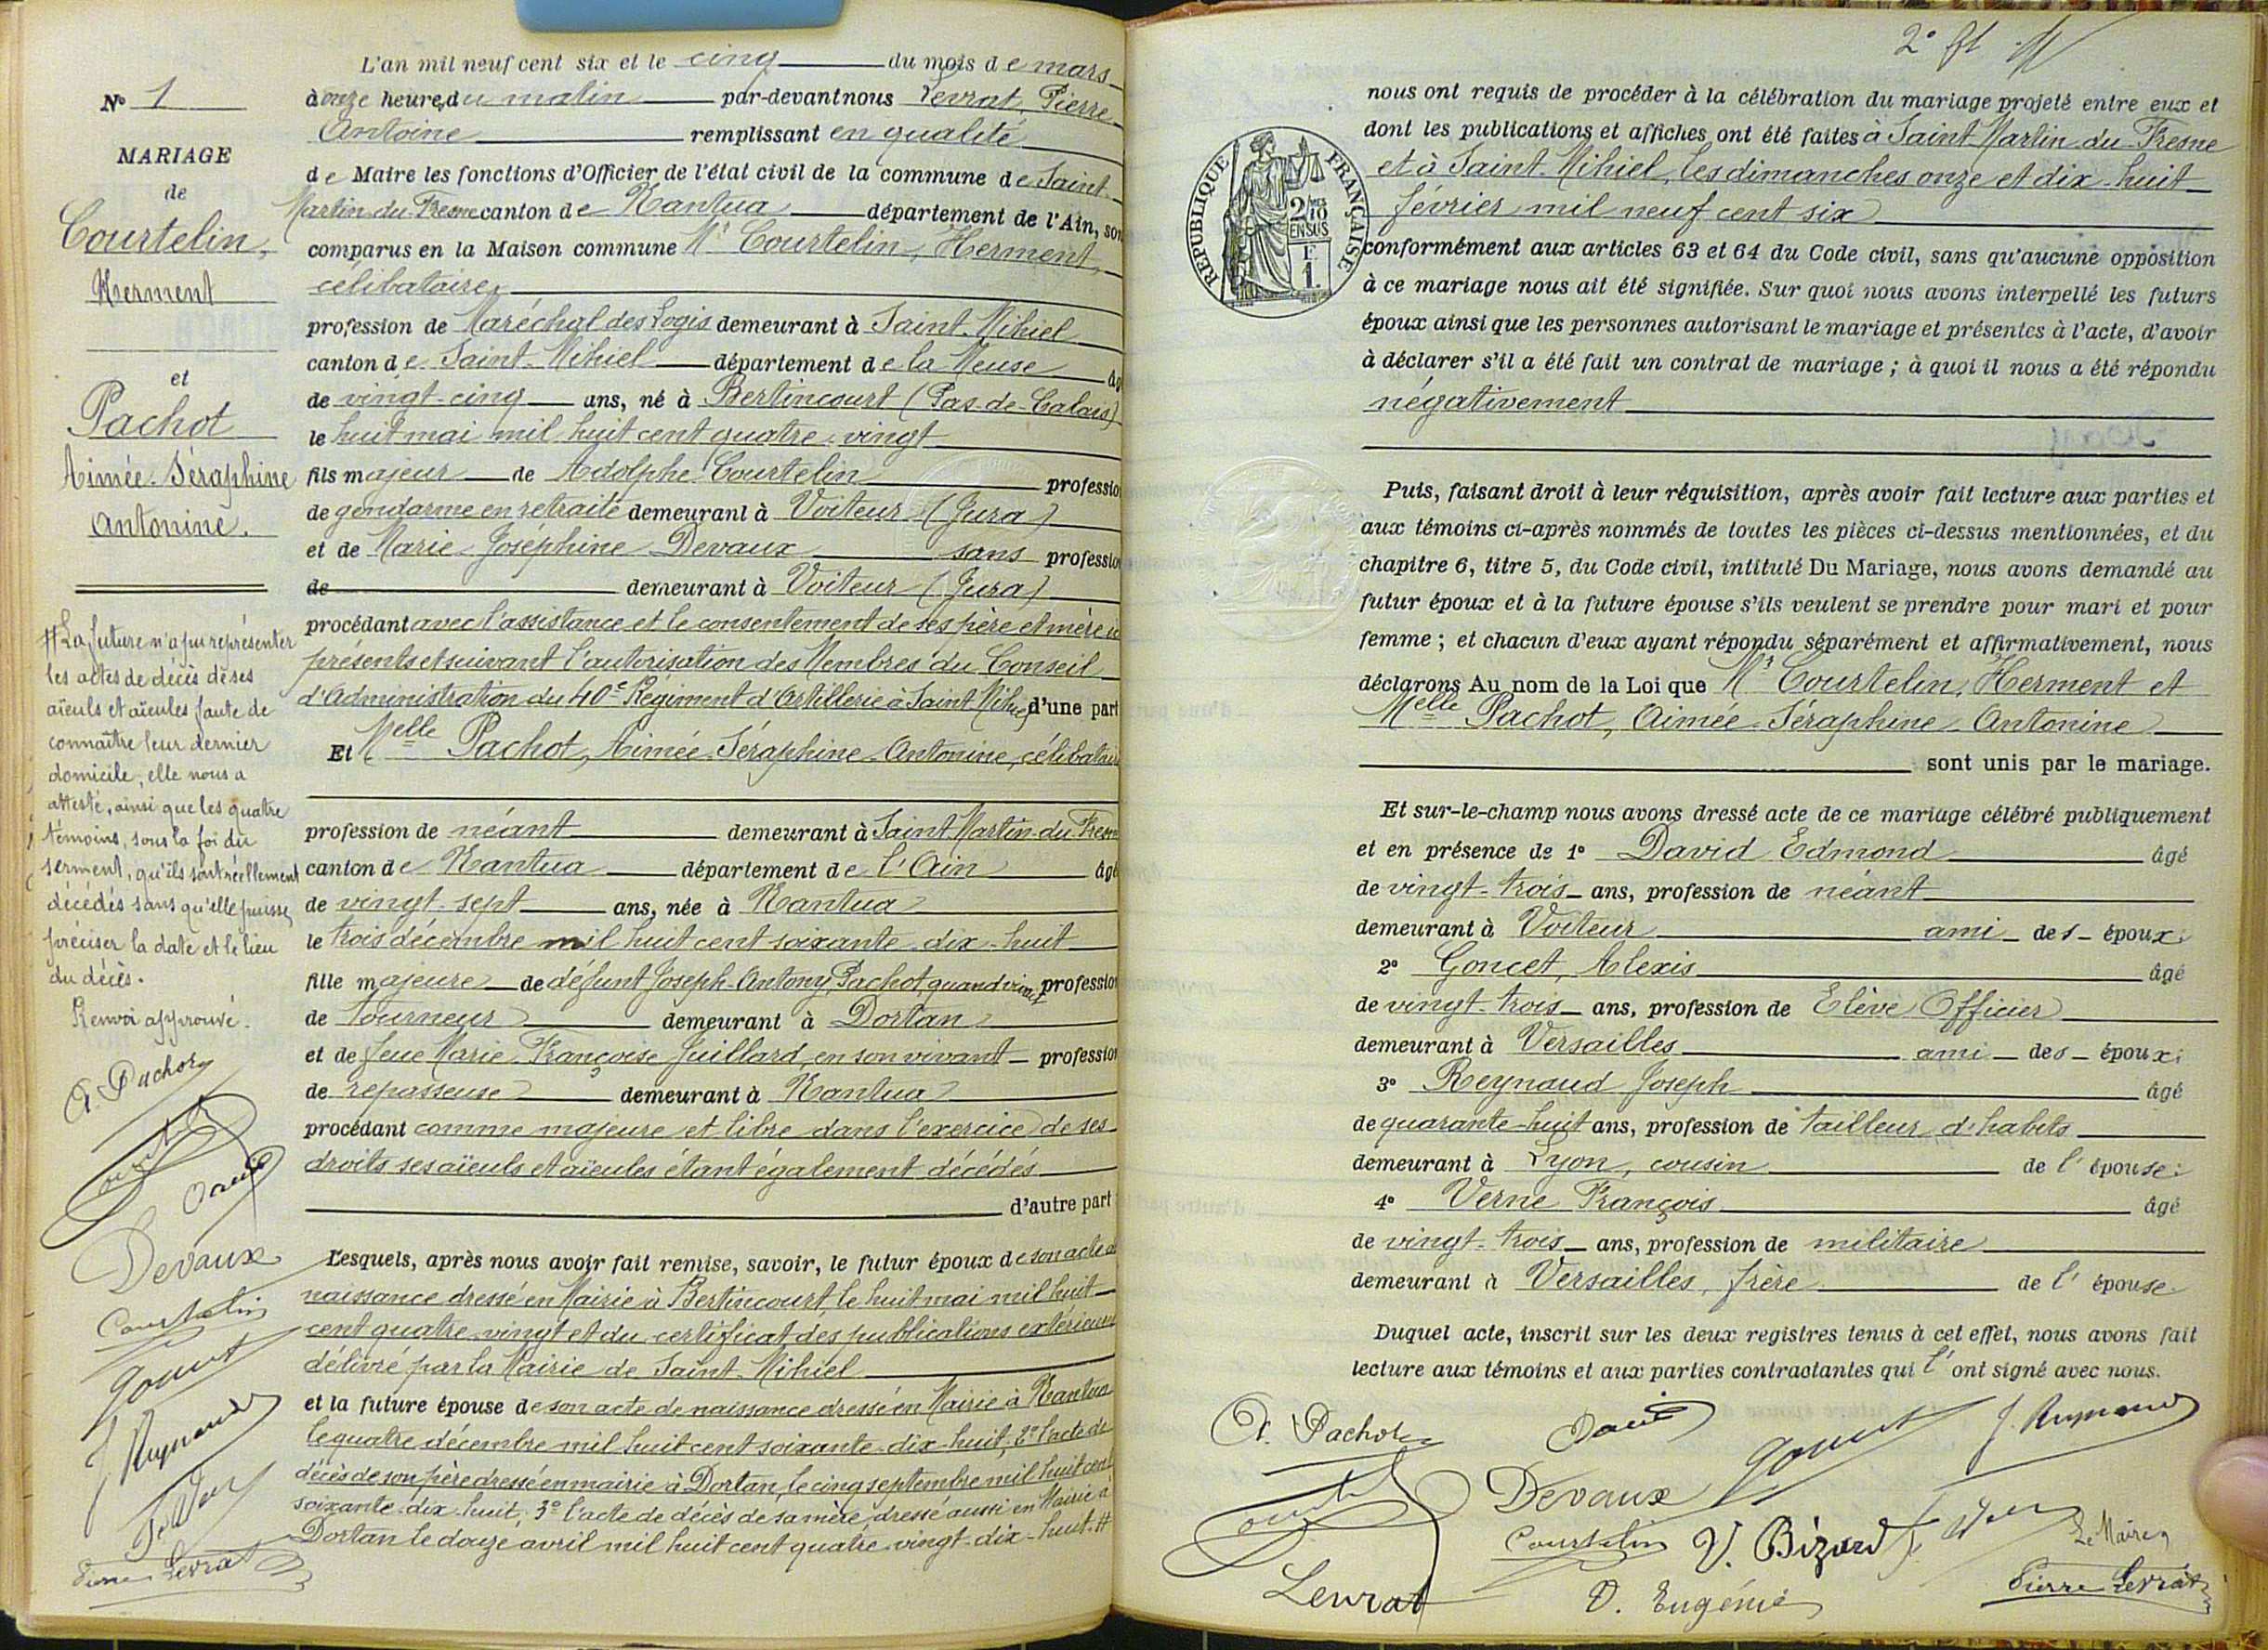 N° 1
MARIAGE
de
Courtelin,
Herment
et
Pachot
Aimée-Séraphine
Antonine.
# La future n'a pu représenter
les actes de décès de ses
aïeuls et aïeules faute de
connaître leur dernier
domicile, elle nous a
attesté, ainsi que les quatre
témoins, sous la foi du
serment, qu'ils sont réellement
décédés sans qu'elle puisse
préciser la date et le lieu
du décès.
Renvoi approuvé.
A. Pachot
David
Devaux
Courtelin
Goncet
J. Reynaud
Pierre Levrat
L'an mil neuf cent six et le cinq du mois de mars
à onze heures du matin par-devant nous Levrat, Pierre
Antoine remplissant en qualité
de Maire les fonctions d'Officier de l'état civil de la commune de Saint
Martin-du-Fresne canton de Nantua département de l'Ain, son
comparus en la Maison commune Mr Courtelin, Herment,
célibataire,
profession de Maréchal des Logis demeurant à Saint-Mihiel
canton de Saint-Mihiel département de la Meuse âg
de vingt-cinq ans, né à Bertincourt (Pas-de-Calais)
le huit mai mil huit cent quatre-vingt
fils majeur de Adolphe Courtelin professio
de gendarme en retraite demeurant à Voiteur (Jura)
et de Marie Joséphine Devaux sans professio
de demeurant à Voiteur (Jura)
procédant avec l'assistance et le consentement de ses père et mère ici
présents et suivant l'autorisation des Membres du Conseil
d'Administration du 40e Régiment d'Artillerie à Saint Mihiel d'une part
Et Melle Pachot, Aimée-Séraphine-Antonine, célibataire
profession de néant demeurant à Saint Martin-du-Fresne
canton de Nantua département de l'Ain âgé
de vingt-sept ans, née à Nantua
le trois décembre mil huit cent soixante-dix-huit
fille majeure de défunt Joseph-Antony Pachot, quand vivait profession
de Tourneur demeurant à Dortan
et de feue Marie Françoise Juillard, en son vivant profession
de repasseuse demeurant à Nantua
procédant comme majeure et libre dans l'exercice de ses
droits ses aïeuls et aïeules étant également décédés
d'autre part
Lesquels, après nous avoir fait remise, savoir, le futur époux de son acte de
naissance dressé en Mairie à Bertincourt, le huit mai mil huit
cent quatre-vingt et du certificat des publications extérieures
délivré par la Mairie de Saint-Mihiel
et la future épouse de son acte de naissance dressé en Mairie à Nantua
le quatre décembre mil huit cent soixante-dix-huit, 2° l'acte de
décès de son père dressé en mairie à Dortan, le cinq septembre mil huit cent
soixante-dix-huit, 3° l'acte de décès de sa mère, dressé aussi en Mairie à
Dortan le douze avril mil huit cent quatre-vingt-dix-huit. #
2e
RÉPUBLIQUE FRANÇAISE
2/10
EN SUS
F.
1.
nous ont requis de procéder à la célébration du mariage projeté entre eux et
dont les publications et affiches ont été faites à Saint-Martin-du-Fresne
et à Saint-Mihiel, les dimanches onze et dix-huit
février mil neuf cent six
conformément aux articles 63 et 64 du Code civil, sans qu'aucune opposition
à ce mariage nous ait été signifiée. Sur quoi nous avons interpellé les futurs
époux ainsi que les personnes autorisant le mariage et présentes à l'acte, d'avoir
à déclarer s'il a été fait un contrat de mariage ; à quoi il nous a été répondu
négativement
Puis, faisant droit à leur réquisition, après avoir fait lecture aux parties et
aux témoins ci-après nommés de toutes les pièces ci-dessus mentionnées, et du
chapitre 6, titre 5, du Code civil, intitulé Du Mariage, nous avons demandé au
futur époux et à la future épouse s'ils veulent se prendre pour mari et pour
femme ; et chacun d'eux ayant répondu séparément et affirmativement, nous
déclarons Au nom de la Loi que Mr Courtelin, Herment et
Melle Pachot, Aimée-Séraphine-Antonine
sont unis par le mariage.
Et sur-le-champ nous avons dressé acte de ce mariage célébré publiquement
et en présence de 1° David Edmond âgé
de vingt-trois ans, profession de néant
demeurant à Voiteur ami des époux;
2° Goncet, Alexis âgé
de vingt-trois ans, profession de Elève Officier
demeurant à Versailles ami des époux;
3° Reynaud Joseph âgé
de quarante-huit ans, profession de tailleur d'habits
demeurant à Lyon, cousin de l'épouse;
4° Verne François âgé
de vingt-trois ans, profession de militaire
demeurant à Versailles, frère de l'épouse.
Duquel acte, inscrit sur les deux registres tenus à cet effet, nous avons fait
lecture aux témoins et aux parties contractantes qui l'ont signé avec nous.
A. Pachot
David
Goncet
J. Reynaud
Devaux
Courtelin
V. Bizard
Le Maire
Levrat
D. Eugénie
Pierre Levrat